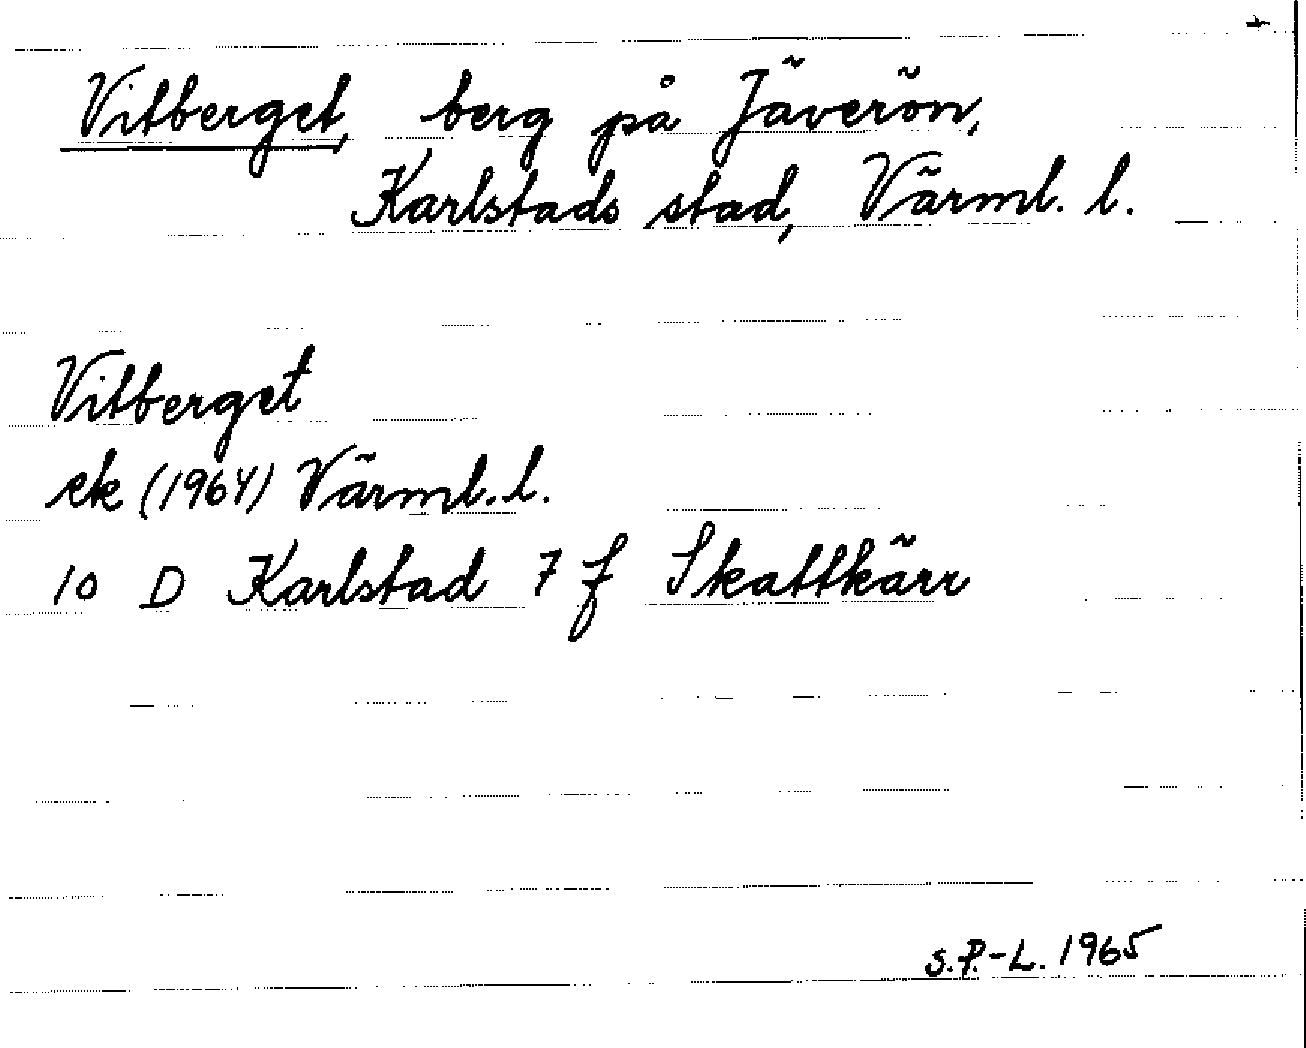 +
Vitberget, berg på Jäverön,
Karlstads stad, Värml. l.
Vitberget
ek (1964) Värml. l.
10 D Karlstad 7 f Skattkärr
S.P.-L. 1965